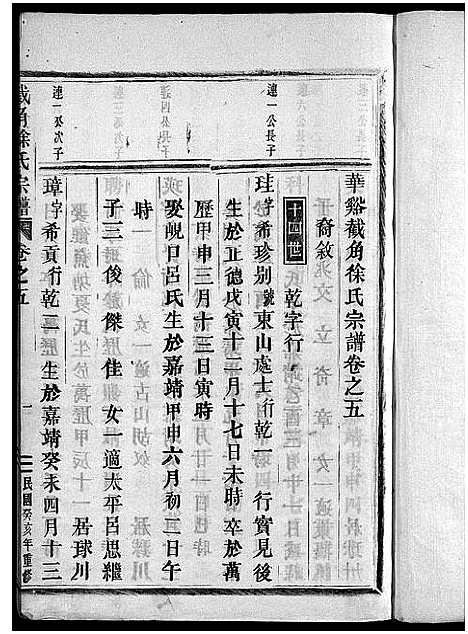 華谿截角徐氏宗譜卷之五
裔敘
十四世 乾字行
連一公長子
珪字希珍别號東山處士行乾一 行實見後
生於正德戊寅十二月十七日未時 卒於萬
歷甲申三月十三日寅時
娶峴口呂氏生於嘉靖甲申六月初二日午
時
子三 俊 傑 佳 女一適太平呂思繼
居球川
連一公次子
璋字希貢行乾二 生於嘉靖癸未四月十三
截角徐氏宗譜 卷之五 一 民國癸亥年重修